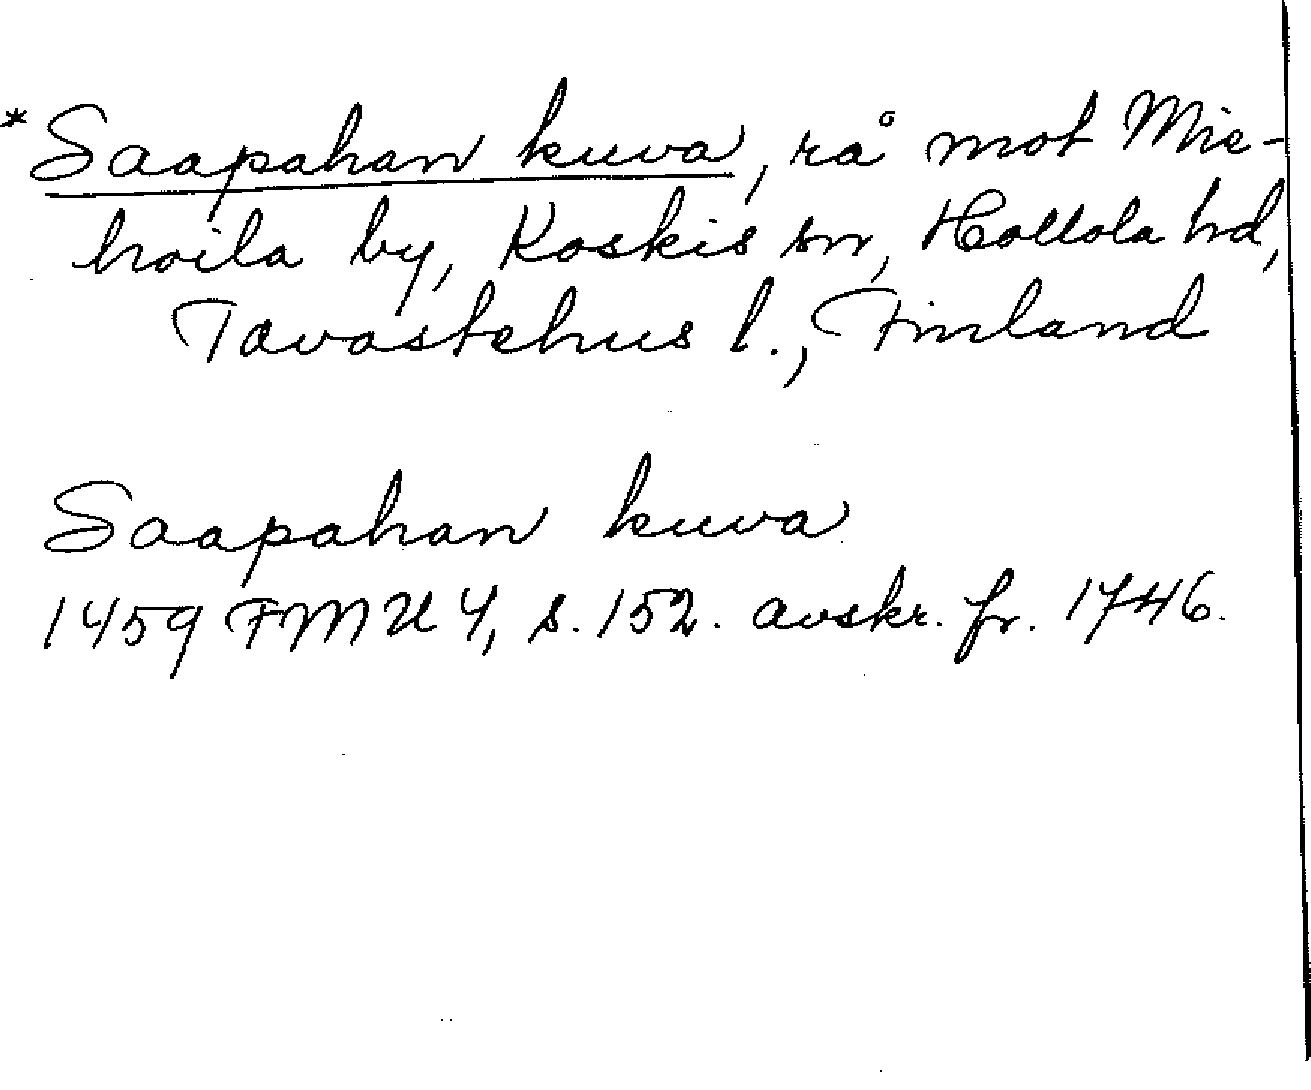 *Saapahan kuva, rå mot Mie-
hoila by, Koskis sn, Hollola hd,
Tavastehus l., Finland
Saapahan kuva
1459 FMU 4, s. 152. avskr. fr. 1746.